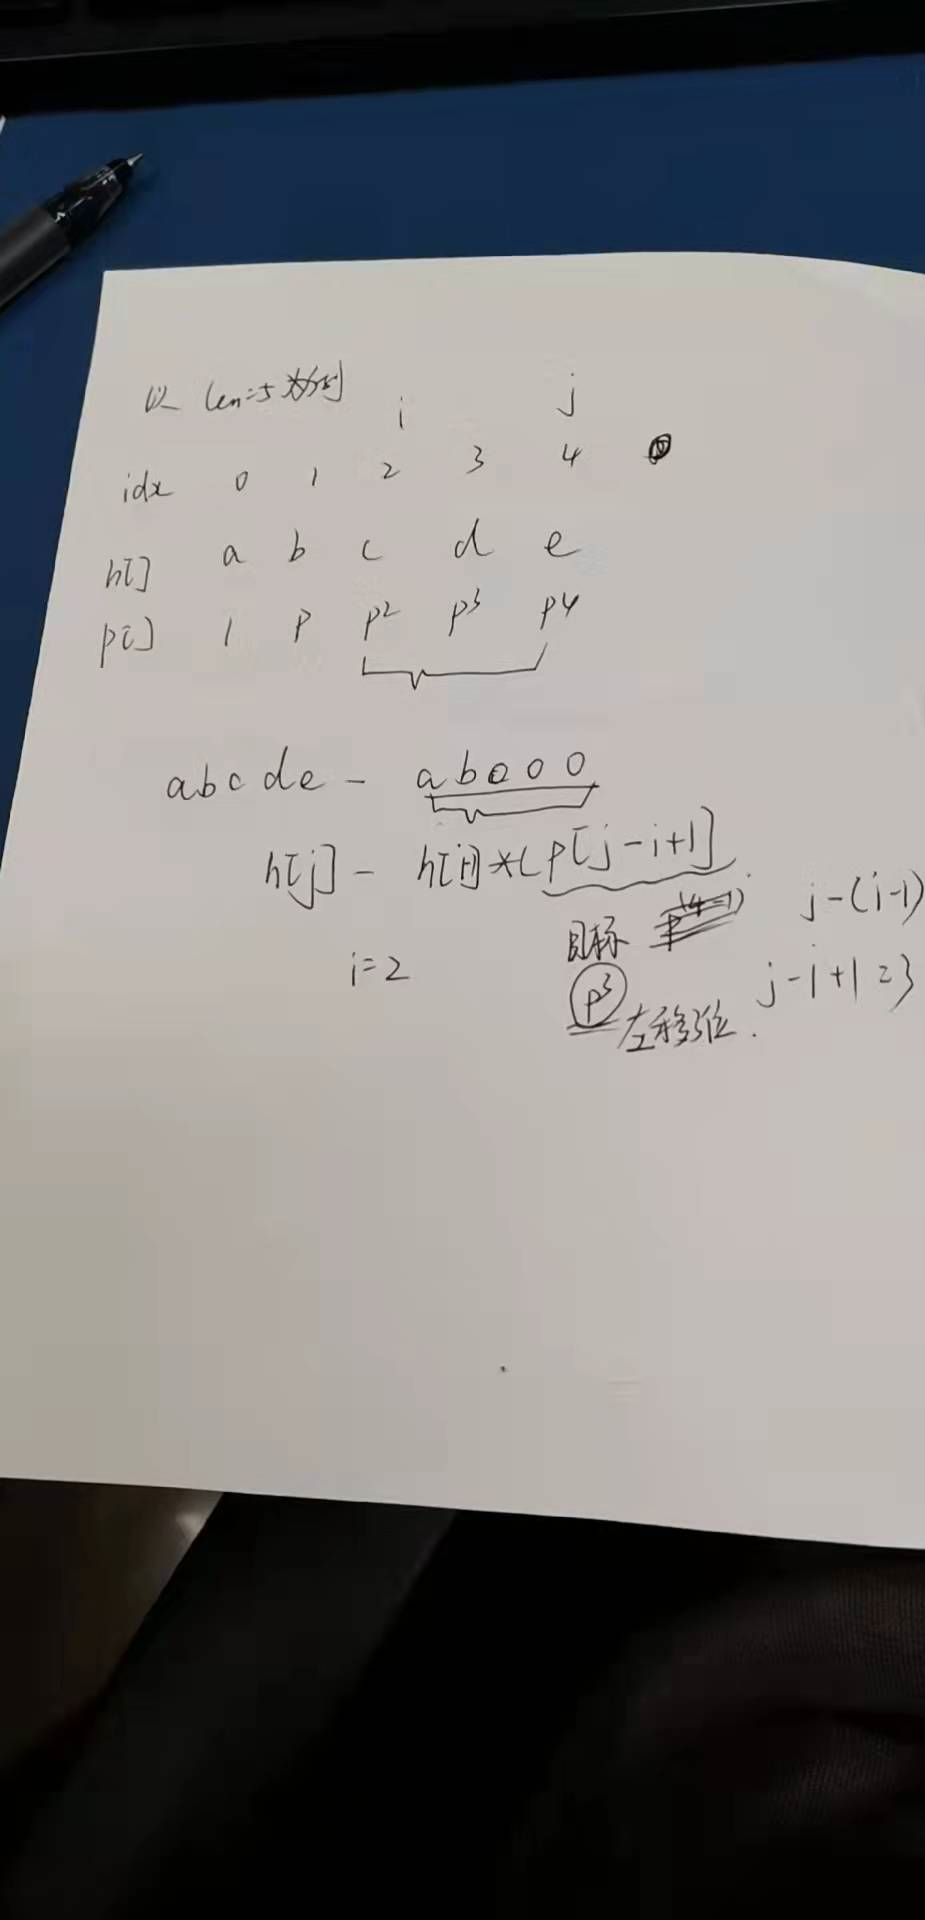 以 len=5 为例
i j
idx 0 1 2 3 4
h[] a b c d e
p[] 1 p p2 p3 p4
abcde - ab000
h[j] - h[i-1]*(p[j-i+1]
j-(i-1)
目标
i=2
p3
j-i+1=3
左移3位.